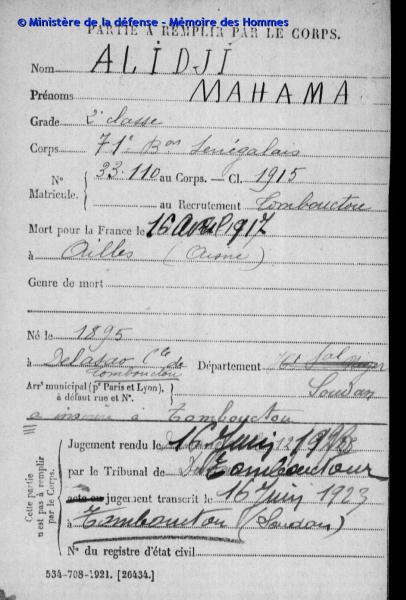 © Ministère de la défense - Mémoire des Hommes
PARTIE À REMPLIR PAR LE CORPS.
Nom ALIDJI
Prénoms MAHAMA
Grade 2e classe
Corps 71e Bon Sénégalais
N° 33.110 au Corps. — Cl. 1915
Matricule. au Recrutement Tombouctou
Mort pour la France le 16 avril 1917
à Ailles (Aisne)
Genre de mort
Né le 1895
à Cle de Tombouctou Département Ht Sal Niger
Arrt municipal (pr Paris et Lyon), à défaut rue et N°. Soudan
à Tombouctou
Cette partie n'est pas à remplir par le Corps.
Jugement rendu le 16 Juin
par le Tribunal de Tombouctou
acte ou jugement transcrit le 16 Juin 1923
à Tombouctou (Soudan)
N° du registre d'état civil
534-708-1921. [26434.]